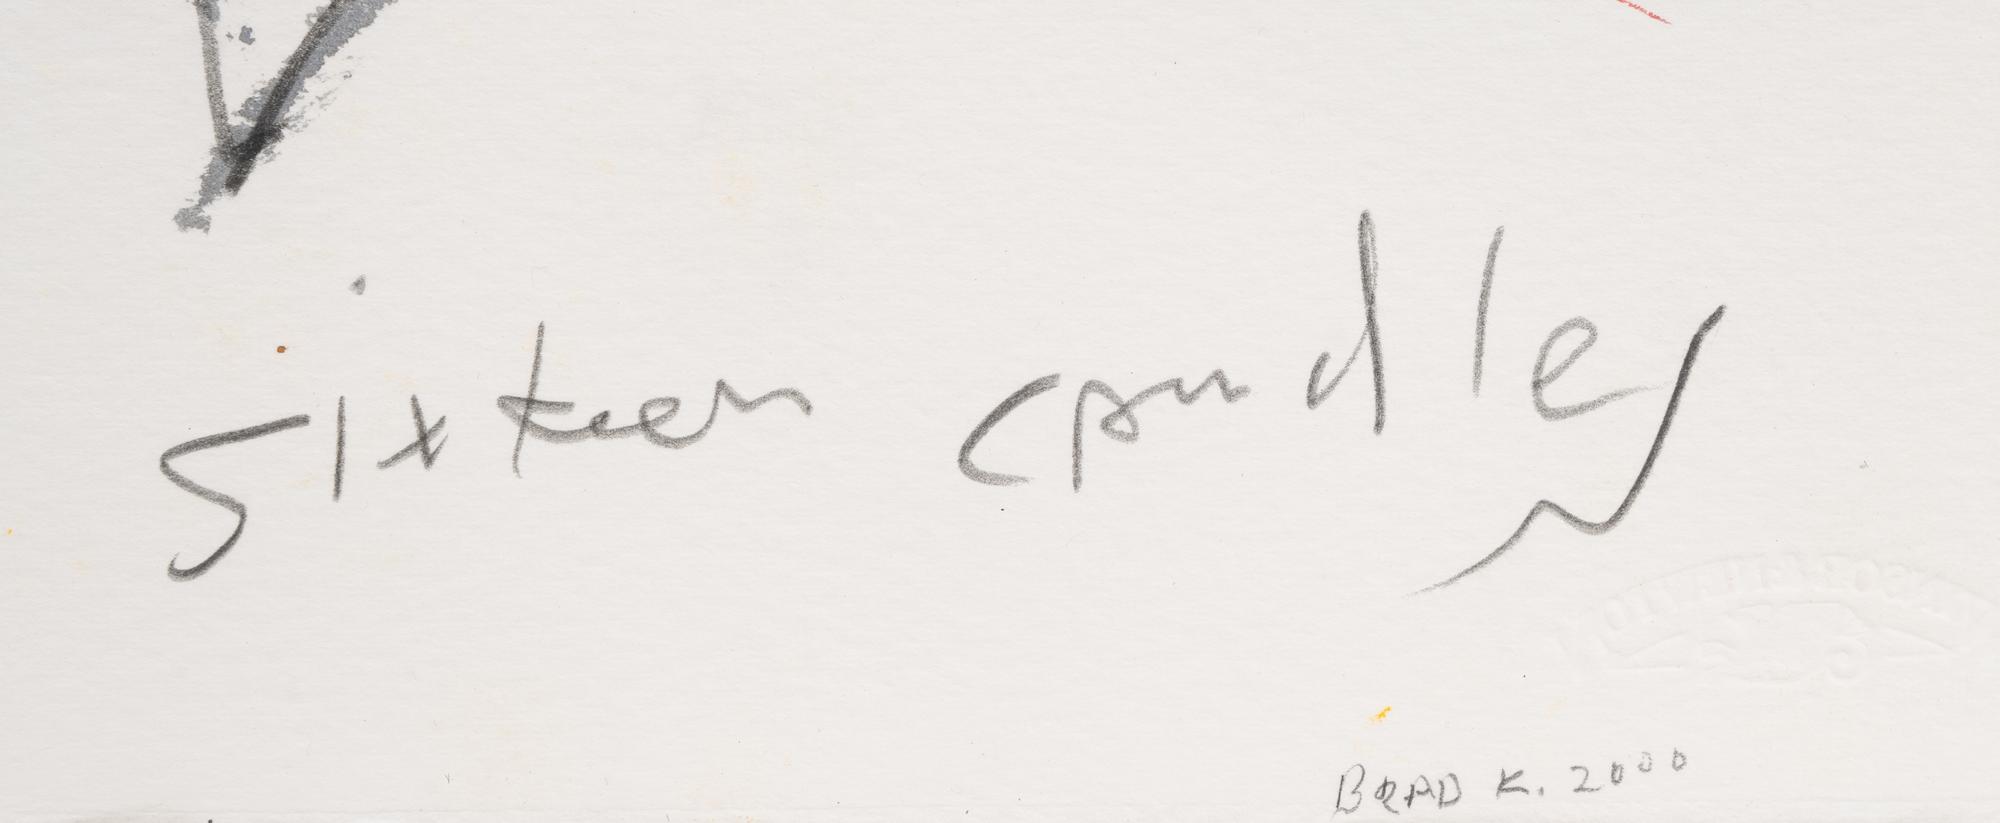 sixteen candles
BRAD K. 2000